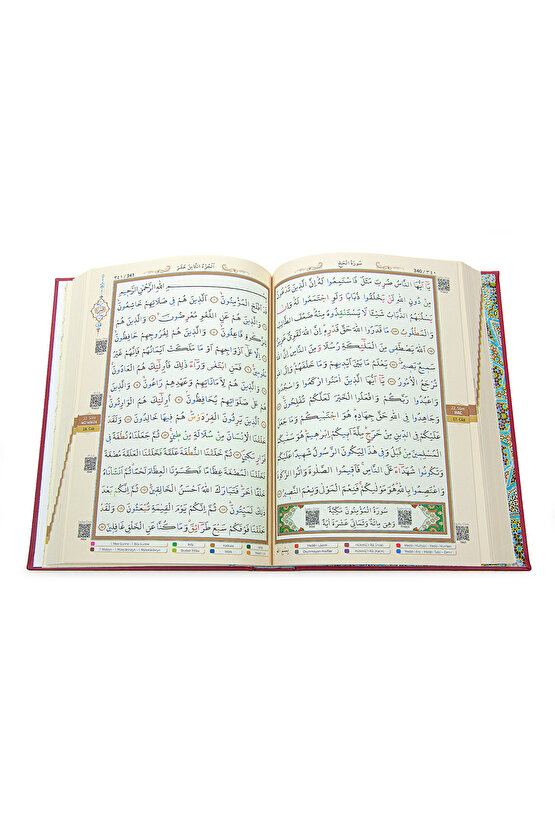 340 / ٣٤٠
سُورَةُ الْحَجِّ
يَٓا اَيُّهَا النَّاسُ ضُرِبَ مَثَلٌ فَاسْتَمِعُوا لَهُ اِنَّ الَّذِينَ تَدْعُونَ
مِنْ دُونِ اللّٰهِ لَنْ يَخْلُقُوا ذُبَابًا وَلَوِ اجْتَمَعُوا لَهُ وَاِنْ
يَسْلُبْهُمُ الذُّبَابُ شَيْئًا لَا يَسْتَنْقِذُوهُ مِنْهُ ضَعُفَ الطَّالِبُ
وَالْمَطْلُوبُ مَا قَدَرُوا اللّٰهَ حَقَّ قَدْرِهِ اِنَّ اللّٰهَ لَقَوِيٌّ عَزِيزٌ
اَللّٰهُ يَصْطَفِي مِنَ الْمَلٰٓئِكَةِ رُسُلًا وَمِنَ النَّاسِ اِنَّ
اللّٰهَ سَمِيعٌ بَصِيرٌ يَعْلَمُ مَا بَيْنَ اَيْدِيهِمْ وَمَا خَلْفَهُمْ وَاِلَى اللّٰهِ
تُرْجَعُ الْاُمُورُ يَٓا اَيُّهَا الَّذِينَ اٰمَنُوا ارْكَعُوا وَاسْجُدُوا
وَاعْبُدُوا رَبَّكُمْ وَافْعَلُوا الْخَيْرَ لَعَلَّكُمْ تُفْلِحُونَ
وَجَاهِدُوا فِي اللّٰهِ حَقَّ جِهَادِهِ هُوَ اجْتَبٰيكُمْ وَمَا جَعَلَ
عَلَيْكُمْ فِي الدِّينِ مِنْ حَرَجٍ مِلَّةَ اَبِيكُمْ اِبْرٰهِيمَ هُوَ سَمّٰيكُمُ
الْمُسْلِمِينَ مِنْ قَبْلُ وَفِي هٰذَا لِيَكُونَ الرَّسُولُ شَهِيدًا عَلَيْكُمْ
وَتَكُونُوا شُهَدَٓاءَ عَلَى النَّاسِ فَاَقِيمُوا الصَّلٰوةَ وَاٰتُوا الزَّكٰوةَ
وَاعْتَصِمُوا بِاللّٰهِ هُوَ مَوْلٰيكُمْ فَنِعْمَ الْمَوْلٰى وَنِعْمَ النَّصِيرُ
سُورَةُ الْمُؤْمِنُونَ مَكِّيَّةٌ
وَهِيَ مِائَةٌ وَثَمَانِ عَشْرَةَ اٰيَةً
بِسْمِ
22. Sûre
HAC
17. Cüz
٣٤١ / 341
اَلْجُزْءُ الثَّامِنُ عَشَرَ
اللّٰهِ الرَّحْمٰنِ الرَّحِيمِ
قَدْ اَفْلَحَ الْمُؤْمِنُونَ اَلَّذِينَ هُمْ فِي صَلَاتِهِمْ خَاشِعُونَ
وَالَّذِينَ هُمْ عَنِ اللَّغْوِ مُعْرِضُونَ وَالَّذِينَ هُمْ
لِلزَّكٰوةِ فَاعِلُونَ وَالَّذِينَ هُمْ لِفُرُوجِهِمْ حَافِظُونَ
اِلَّا عَلٰٓى اَزْوَاجِهِمْ اَوْ مَا مَلَكَتْ اَيْمَانُهُمْ فَاِنَّهُمْ غَيْرُ
مَلُومِينَ فَمَنِ ابْتَغٰى وَرَٓاءَ ذٰلِكَ فَاُو۬لٰٓئِكَ هُمُ الْعَادُونَ
وَالَّذِينَ هُمْ لِاَمَانَاتِهِمْ وَعَهْدِهِمْ رَاعُونَ وَالَّذِينَ
هُمْ عَلٰى صَلَوَاتِهِمْ يُحَافِظُونَ اُو۬لٰٓئِكَ هُمُ الْوَارِثُونَ
اَلَّذِينَ يَرِثُونَ الْفِرْدَوْسَ هُمْ فِيهَا خَالِدُونَ وَلَقَدْ
خَلَقْنَا الْاِنْسَانَ مِنْ سُلَالَةٍ مِنْ طِينٍ ثُمَّ جَعَلْنَاهُ نُطْفَةً فِي
قَرَارٍ مَكِينٍ ثُمَّ خَلَقْنَا النُّطْفَةَ عَلَقَةً فَخَلَقْنَا الْعَلَقَةَ مُضْغَةً
فَخَلَقْنَا الْمُضْغَةَ عِظَامًا فَكَسَوْنَا الْعِظَامَ لَحْمًا ثُمَّ اَنْشَاْنَاهُ
خَلْقًا اٰخَرَ فَتَبَارَكَ اللّٰهُ اَحْسَنُ الْخَالِقِينَ ثُمَّ اِنَّكُمْ بَعْدَ
ذٰلِكَ لَمَيِّتُونَ ثُمَّ اِنَّكُمْ يَوْمَ الْقِيٰمَةِ تُبْعَثُونَ وَلَقَدْ
خَلَقْنَا فَوْقَكُمْ سَبْعَ طَرَٓائِقَ وَمَا كُنَّا عَنِ الْخَلْقِ غَافِلِينَ
23. Sûre
MÜ'MİNÛN
18. Cüz